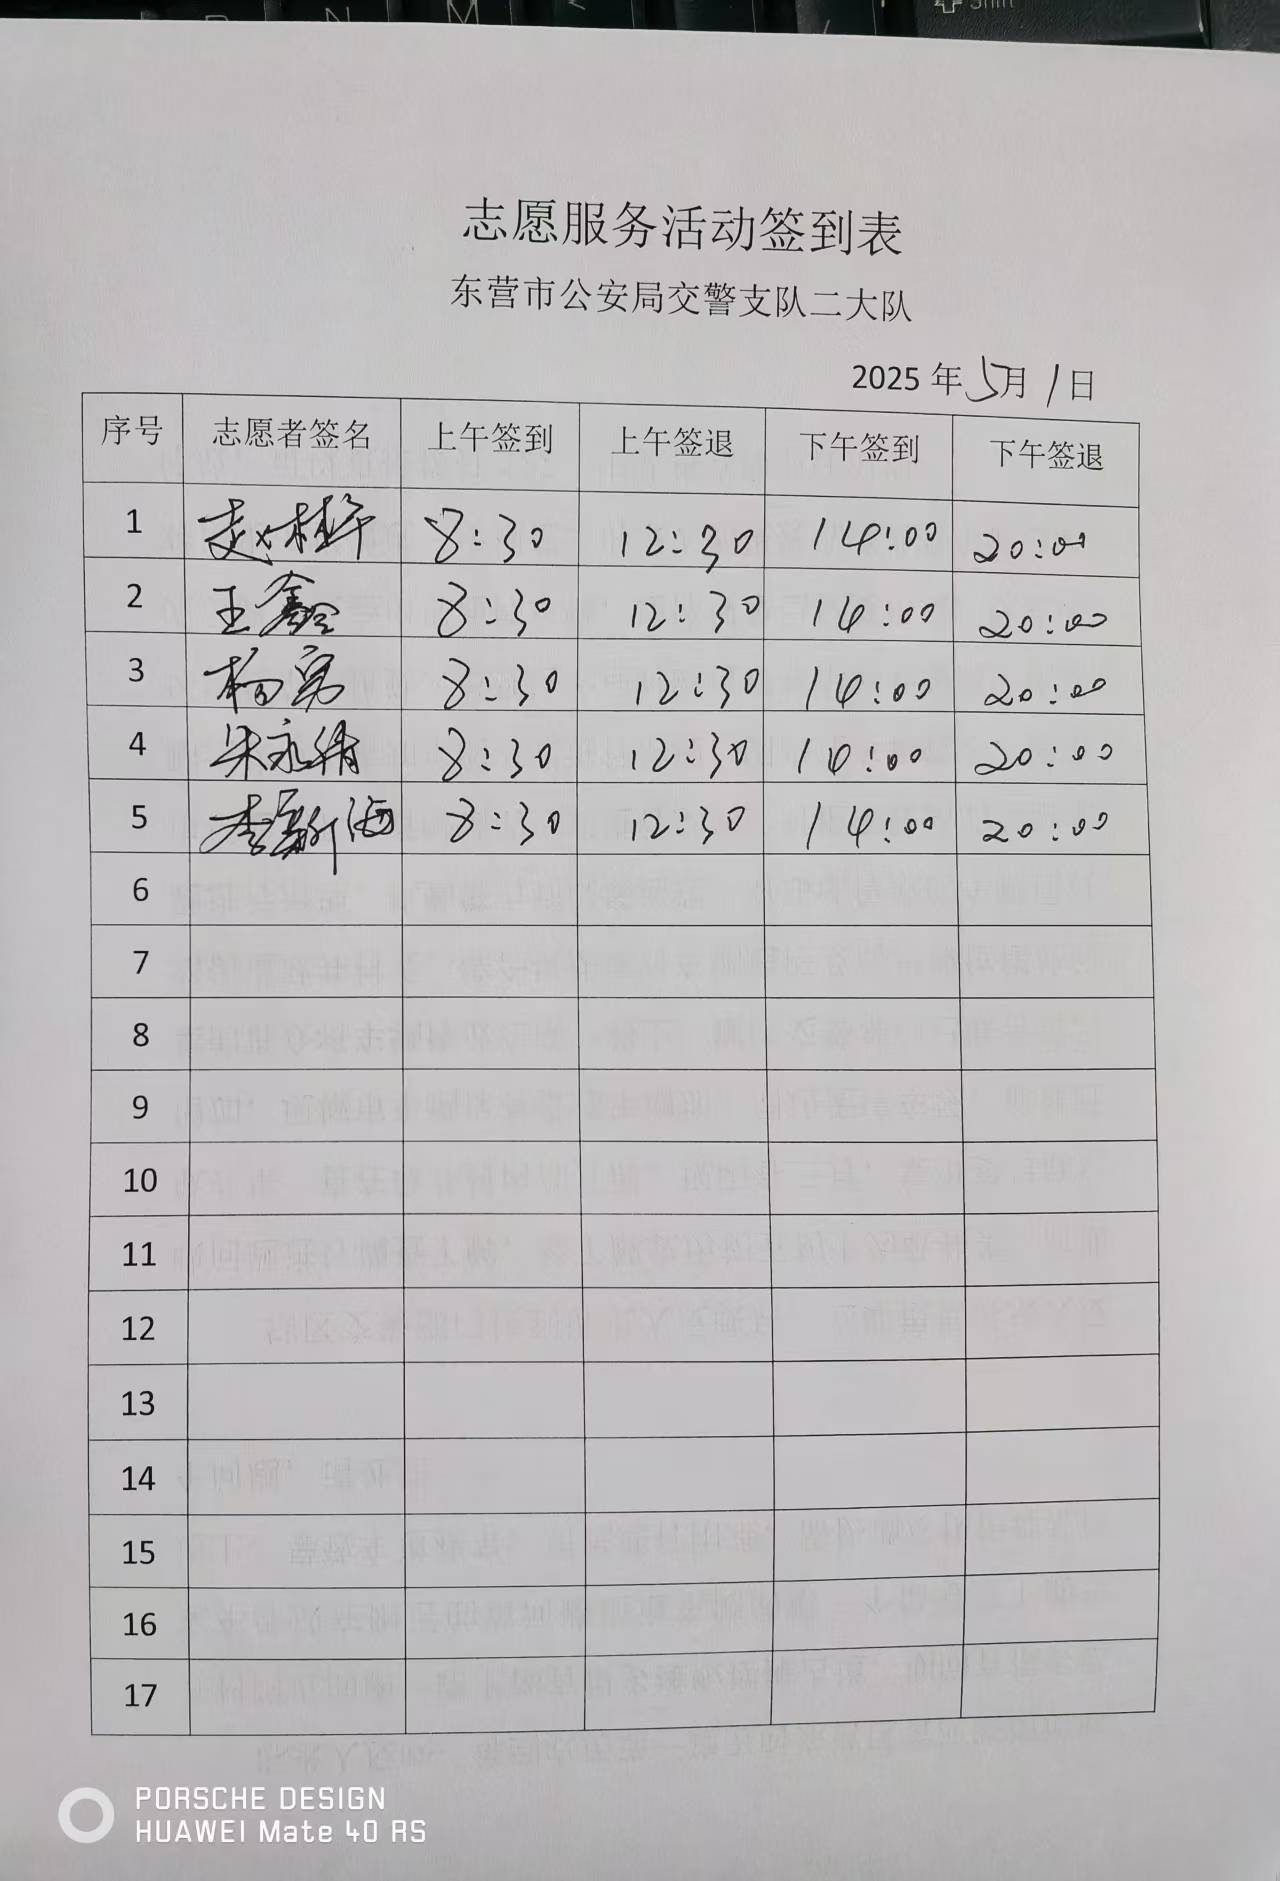 志愿服务活动签到表
东营市公安局交警支队二大队
2025 年 5月 1日
序号 志愿者签名 上午签到 上午签退 下午签到 下午签退
1 赵桂华 8:30 12:30 14:00 20:00
2 王鑫 8:30 12:30 14:00 20:00
3 杨勇 8:30 12:30 14:00 20:00
4 宋永清 8:30 12:30 14:00 20:00
5 李新海 8:30 12:30 14:00 20:00
6
7
8
9
10
11
12
13
14
15
16
17
PORSCHE DESIGN
HUAWEI Mate 40 RS